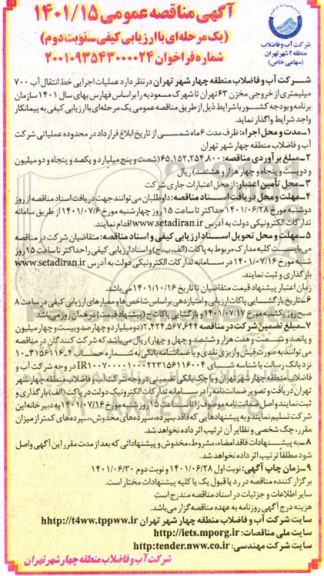 شرکت آب و فاضلاب
منطقه ۴ شهر تهران
(سهامی خاص)
آگهی مناقصه عمومی ۱۴۰۱/۱۵
(یک مرحله‌ای با ارزیابی کیفی سنوبت دوم)
شماره فراخوان ۲۰۰۱۰۹۳۵۴۳۰۰۰۰۲۴
شرکت آب و فاضلاب منطقه چهار شهر تهران در نظر دارد عملیات اجرایی خط انتقال آب ۷۰۰
میلیمتری از خروجی مخزن ۶۲ تهران تا شهرک مسعودیه را بر اساس فهارس بهای سال ۱۴۰۱ سازمان
برنامه و بودجه کشور با شرایط ذیل از طریق مناقصه عمومی یک مرحله‌ای با ارزیابی کیفی به پیمانکار
واجد شرایط واگذار نماید.
۱-مدت و محل اجراء: ظرف مدت ۶ ماه شمسی از تاریخ ابلاغ قرارداد در محدوده عملیاتی شرکت
آب و فاضلاب منطقه چهار شهر تهران
۲-مبلغ برآوردی مناقصه: ۶۵,۱۵۲,۲۵۴,۸۰۰ (شصت و پنج میلیارد و یکصد و پنجاه و دو میلیون
و دویست و پنجاه و چهار هزار و هشتصد) ریال
۳-محل تأمین اعتبار: از محل اعتبارات جاری شرکت
۴-مهلت و محل دریافت اسناد مناقصه: داوطلبان می توانند جهت دریافت اسناد مناقصه از روز
دوشنبه مورخ ۱۴۰۱/۰۶/۲۸ حداکثر تا ساعت ۱۵ روز چهارشنبه مورخ ۱۴۰۱/۰۷/۶ از طریق سامانه
تدارکات الکترونیکی دولت به آدرس www.setadiran.ir اقدام نمایند.
۵-مهلت و محل تحویل اسناد ارزیابی کیفی و اسناد مناقصه: متقاضیان شرکت در مناقصه
می‌بایست کلیه مدارک مربوط به پاکات (الف، ب، ج) و اسناد ارزیابی کیفی را حداکثر تا ساعت ۱۵ روز
شنبه مورخ ۱۴۰۱/۰۷/۱۶ در سامانه تدارکات الکترونیکی دولت به آدرس www.setadiran.ir
بارگذاری و ثبت نمایند.
تاریخ انقضاء پیشنهاد قیمت متقاضیان تا تاریخ ۱۴۰۱/۱۰/۱۶ می باشد.
۶-تاریخ بازگشایی پاکات ارزیابی و امتیازدهی بر اساس شاخص‌ها و معیارهای ارزیابی کیفی در ساعت ۸
صبح روز یکشنبه مورخ ۱۴۰۱/۰۷/۱۷ و بازگشایی پاکات ج (پیشنهاد قیمت) در همان روز می باشد.
۷-مبلغ تضمین شرکت در مناقصه ۲,۴۲۴,۵۶۷,۶۴۴ (دو میلیارد و چهارصد و بیست و چهار میلیون
و پانصد و شصت و هفت هزار و ششصد و چهل و چهار) ریال می باشد که شرکت کنندگان در مناقصه
می توانند به صورت فیش واریزی نقدی و یا ضمانتنامه بانکی به شماره حساب
نزد بانک رفاه با شناسه شبای در وجه شرکت آب و
فاضلاب منطقه چهار شهر تهران و یا چک بانکی تضمینی در وجه شرکت آب و فاضلاب منطقه چهار شهر
تهران دریافت و تصویر ضمانتنامه را در سامانه تدارکات الکترونیک دولت در پاکت (الف) بارگذاری و
ثبت نمایند و اصل ضمانتنامه موصوف را تا ساعت ۱۵ روز شنبه مورخ ۱۴۰۱/۰۷/۱۶ به دبیرخانه این
شرکت تسلیم نمایند و به پیشنهادهایی که فاقد سپرده، سپرده‌های مخدوش، سپرده‌های کمتر از میزان
مقرر، چک شخصی و نظایر آن ترتیب اثر داده نخواهد شد.
۸-به پیشنهادات فاقد امضاء، مشروط، مخدوش و پیشنهاداتی که بعد از مدت مقرر این آگهی واصل
شود مطلقاً ترتیب اثر داده نخواهد شد.
۹-زمان چاپ آگهی: نوبت اول ۱۴۰۱/۰۶/۲۸ و نوبت دوم ۱۴۰۱/۰۶/۳۰
برگزار کننده مناقصه در رد یا قبول یک یا کلیه پیشنهادات مختار است.
سایر اطلاعات و جزئیات در اسناد مناقصه مندرج است
هزینه درج آگهی روزنامه به عهده مناقصه گزار می باشد.
سایت شرکت آب و فاضلاب منطقه چهار شهر تهران hhttp://t4ww.tppww.ir
سایت ملی مناقصات: http://iets.mporg.ir
سایت شرکت مهندسی: http:tender.nww.co.ir
شرکت آب و فاضلاب منطقه چهار شهر تهران